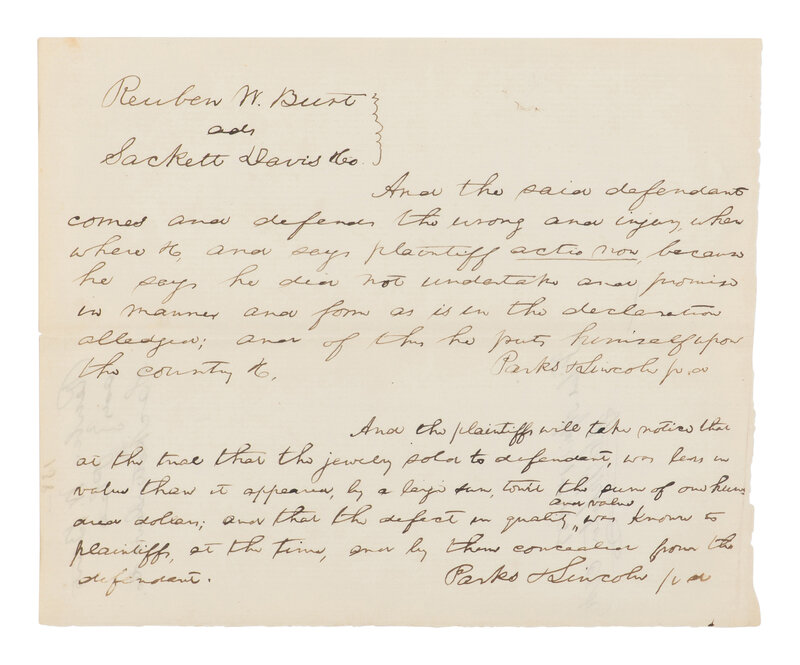 Reuben W. Burt
ads
Sackett Davis &co.
And the said defendant
comes and defends the wrong and injury, when
where &c, and says plaintiff actio non, because
he says he did not undertake and promise
in manner and form as is in the declaration
alledged; and of this he puts himself upon
the country &c. Parks & Lincoln p. d
And the plaintiffs will take notice that
at the trial that the jewelry sold to defendant, was less in
value than it appeared, by a large sum, towit the sum of one hun
dred dollars; and that the defect in quality, and value was known to
plaintiffs, at the time, and by them concealed from the
defendant. Parks & Lincoln p. d